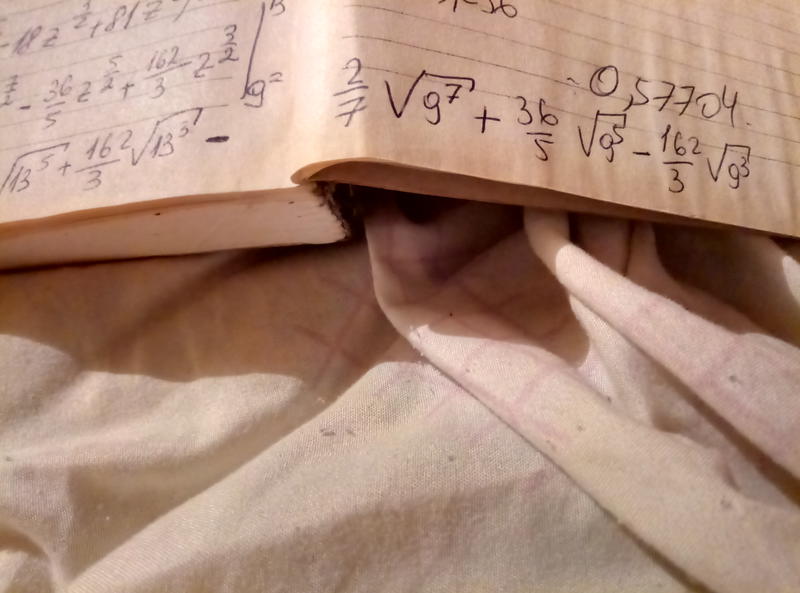 - 18z^{3/2} + 81z^{1/2}
^{7/2} - \frac{36}{5} z^{5/2} + \frac{162}{3} z^{3/2} |_{9}^{13} =
\sqrt{13^5} + \frac{162}{3} \sqrt{13^3} - \frac{2}{7} \sqrt{9^7} + \frac{36}{5} \sqrt{9^5} - \frac{162}{3} \sqrt{9^3}
0,57704.